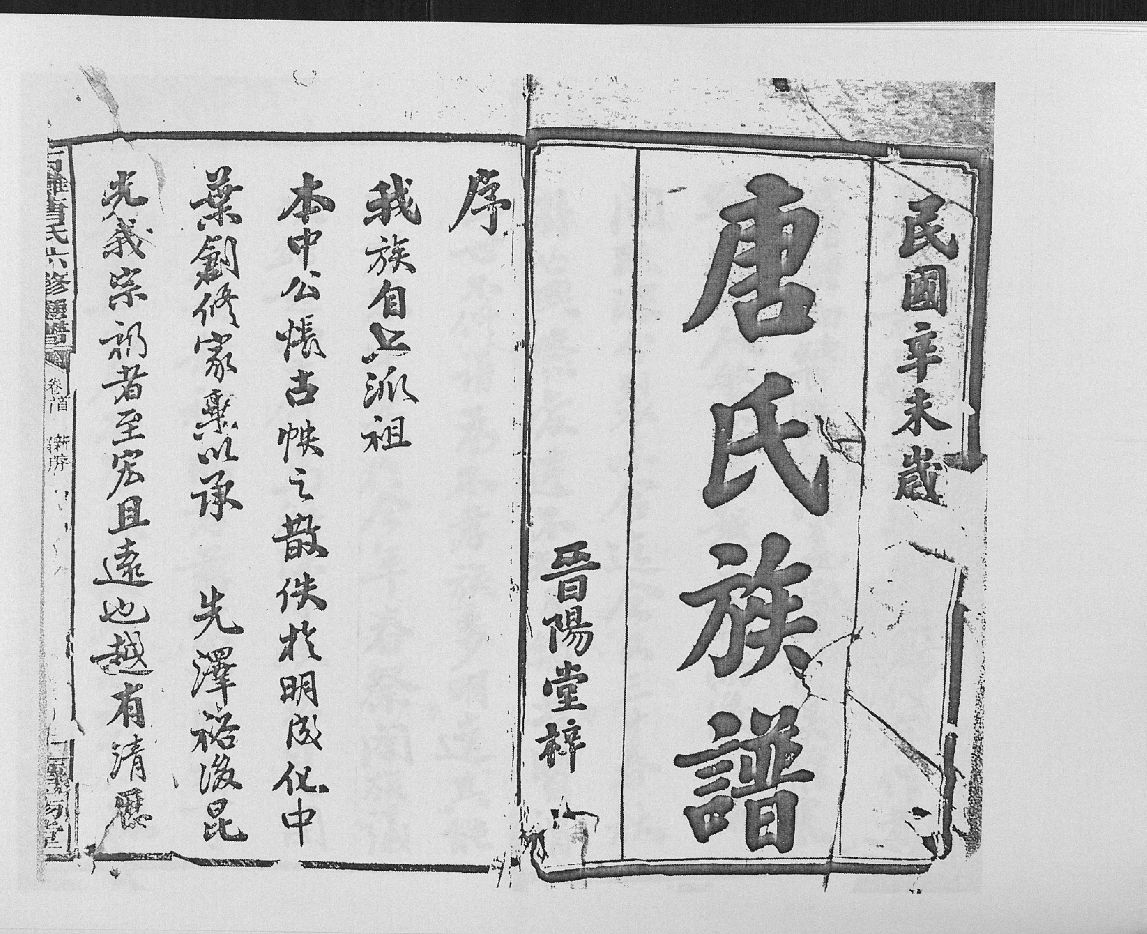 民國辛未歲
唐氏族譜
晉陽堂梓
序
我族自上派祖
本中公悵古帙之散佚於明成化中
葉創修家乘以承 先澤裕後昆
光義宗祊者至宏且遠也越有清歷
唐氏六修通譜
卷首
新序
晉陽堂